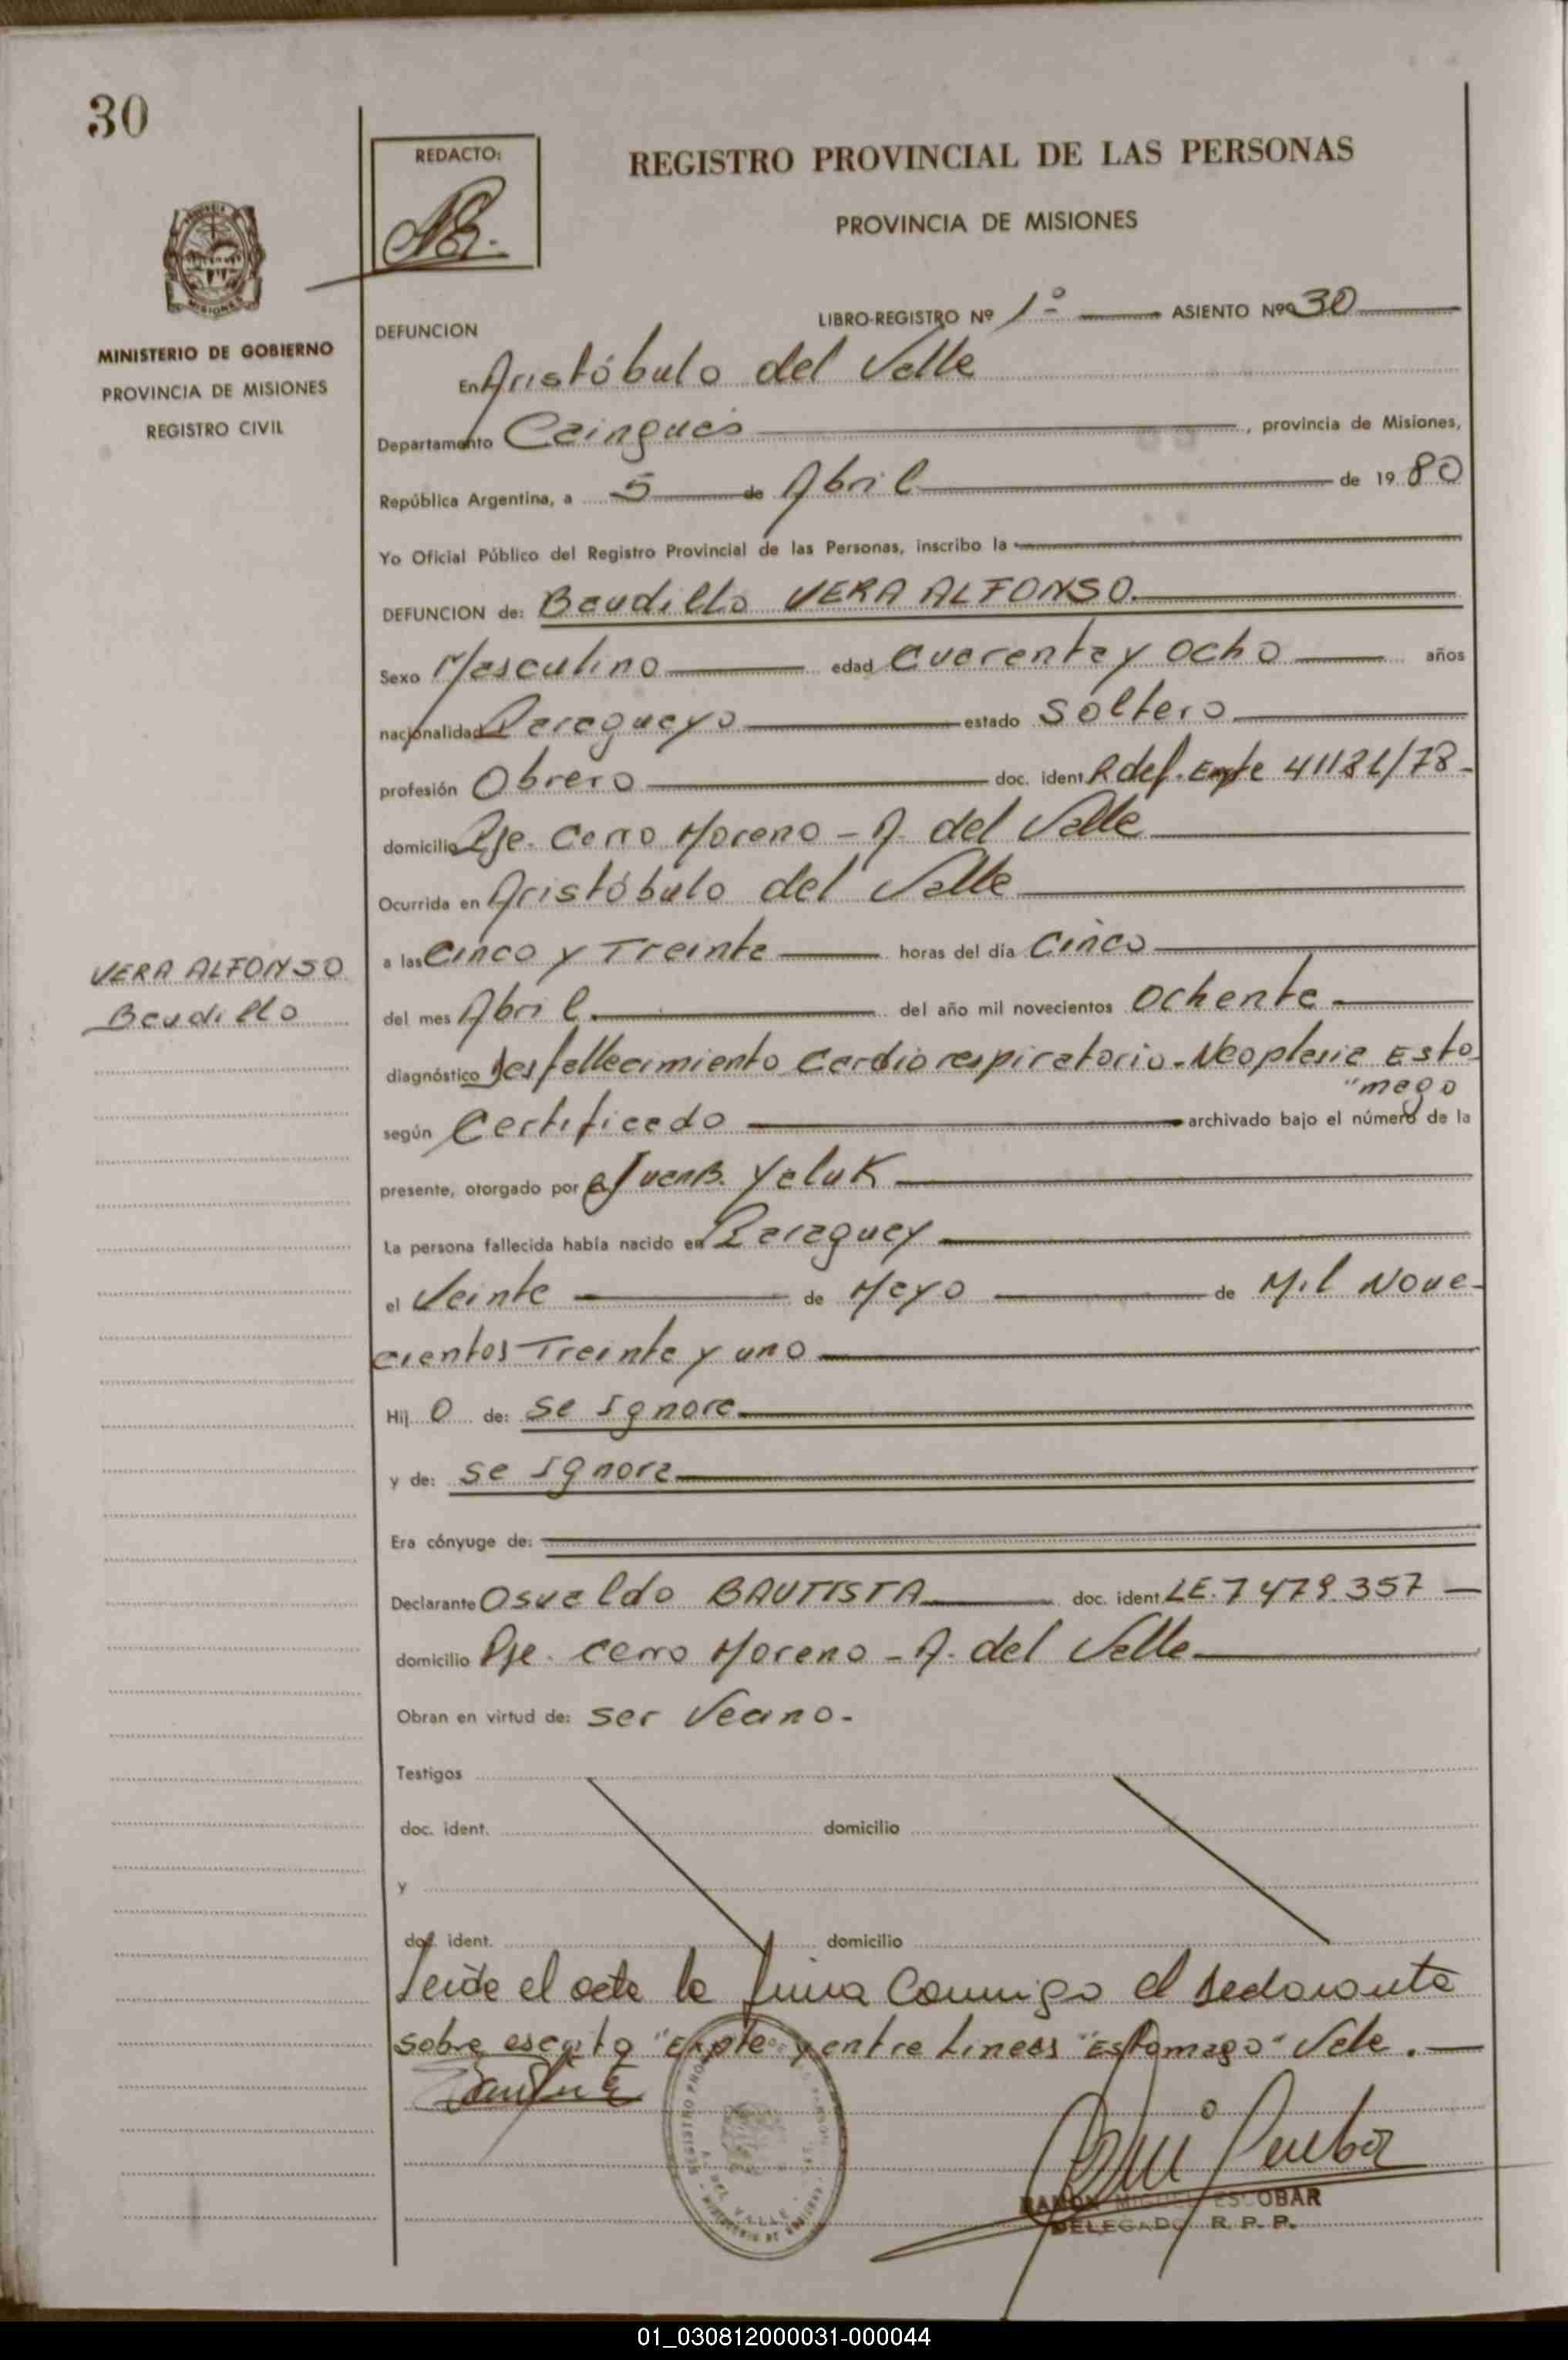 30
REDACTO:
REGISTRO PROVINCIAL DE LAS PERSONAS
PROVINCIA DE MISIONES
MINISTERIO DE GOBIERNO
PROVINCIA DE MISIONES
REGISTRO CIVIL
LIBRO-REGISTRO Nº 1º ASIENTO Nº 30
DEFUNCION
En Aristóbulo del Valle
Departamento Cainguás, provincia de Misiones,
República Argentina, a 5 de Abril de 1980
Yo Oficial Público del Registro Provincial de las Personas, inscribo la
DEFUNCION de: Baudillo VERA ALFONSO.
Sexo Masculino edad Cuarenta y Ocho años
nacionalidad Paraguayo estado Soltero
profesión Obrero doc. ident. Rdef. Expte
domicilio Pje. Cerro Moreno - A. del Valle
Ocurrida en Aristóbulo del Valle
a las Cinco y Treinta horas del día Cinco
VERA ALFONSO
Baudillo
del mes Abril del año mil novecientos Ochenta
diagnóstico Desfallecimiento Cardio respiratorio - Neoplasia Esto
"mago
según Certificado archivado bajo el número de la
presente, otorgado por Juan B. Yaluk
La persona fallecida había nacido en Paraguay
el Veinte de Mayo de Mil Nove-
cientos Treinta y uno
Hijo de: se Ignora
y de: se Ignora
Era cónyuge de:
Declarante Osvaldo BAUTISTA doc. ident. LE. 7479.357
domicilio Pje. Cerro Moreno - A. del Valle
Obran en virtud de: ser Vecino.
Testigos
doc. ident. domicilio
y
doc. ident. domicilio
Leída el acta la firma Conmigo el declarante
sobre escrito "Expte" y entre Lineas "Estomago" Vale.
RAMON MIGUEL ESCOBAR
DELEGADO R. P. P.
01_030812000031-000044